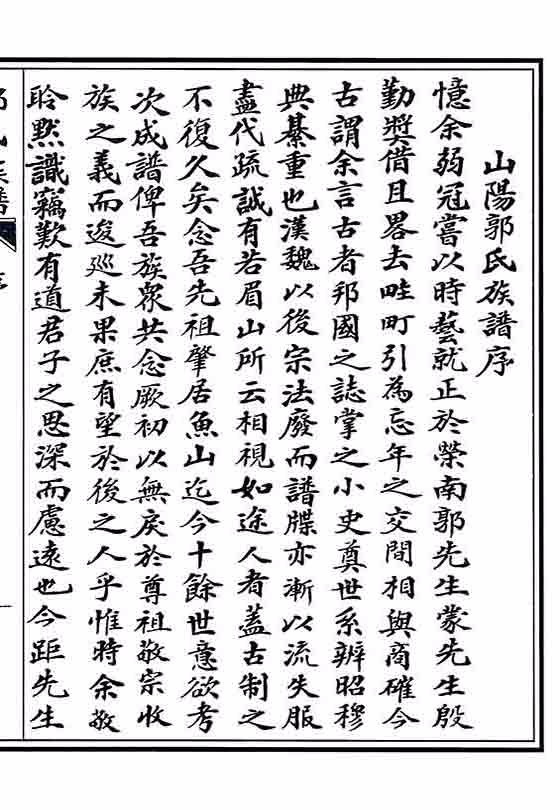 山陽郭氏族譜序
憶余弱冠嘗以時藝就正於榮南郭先生蒙先生殷
勤獎借且畧去畦町引為忘年之交間相與商確今
古謂余言古者邦國之誌掌之小史奠世系辨昭穆
典綦重也漢魏以後宗法廢而譜牒亦漸以流失服
盡代疏誠有若眉山所云相視如途人者蓋古制之
不復久矣念吾先祖肇居魚山迄今十餘世意欲考
次成譜俾吾族衆共念厥初以無戾於尊祖敬宗收
族之義而逡巡未果庶有望於後之人乎惟時余敬
聆默識竊歎有道君子之思深而慮遠也今距先生
氏族譜
序